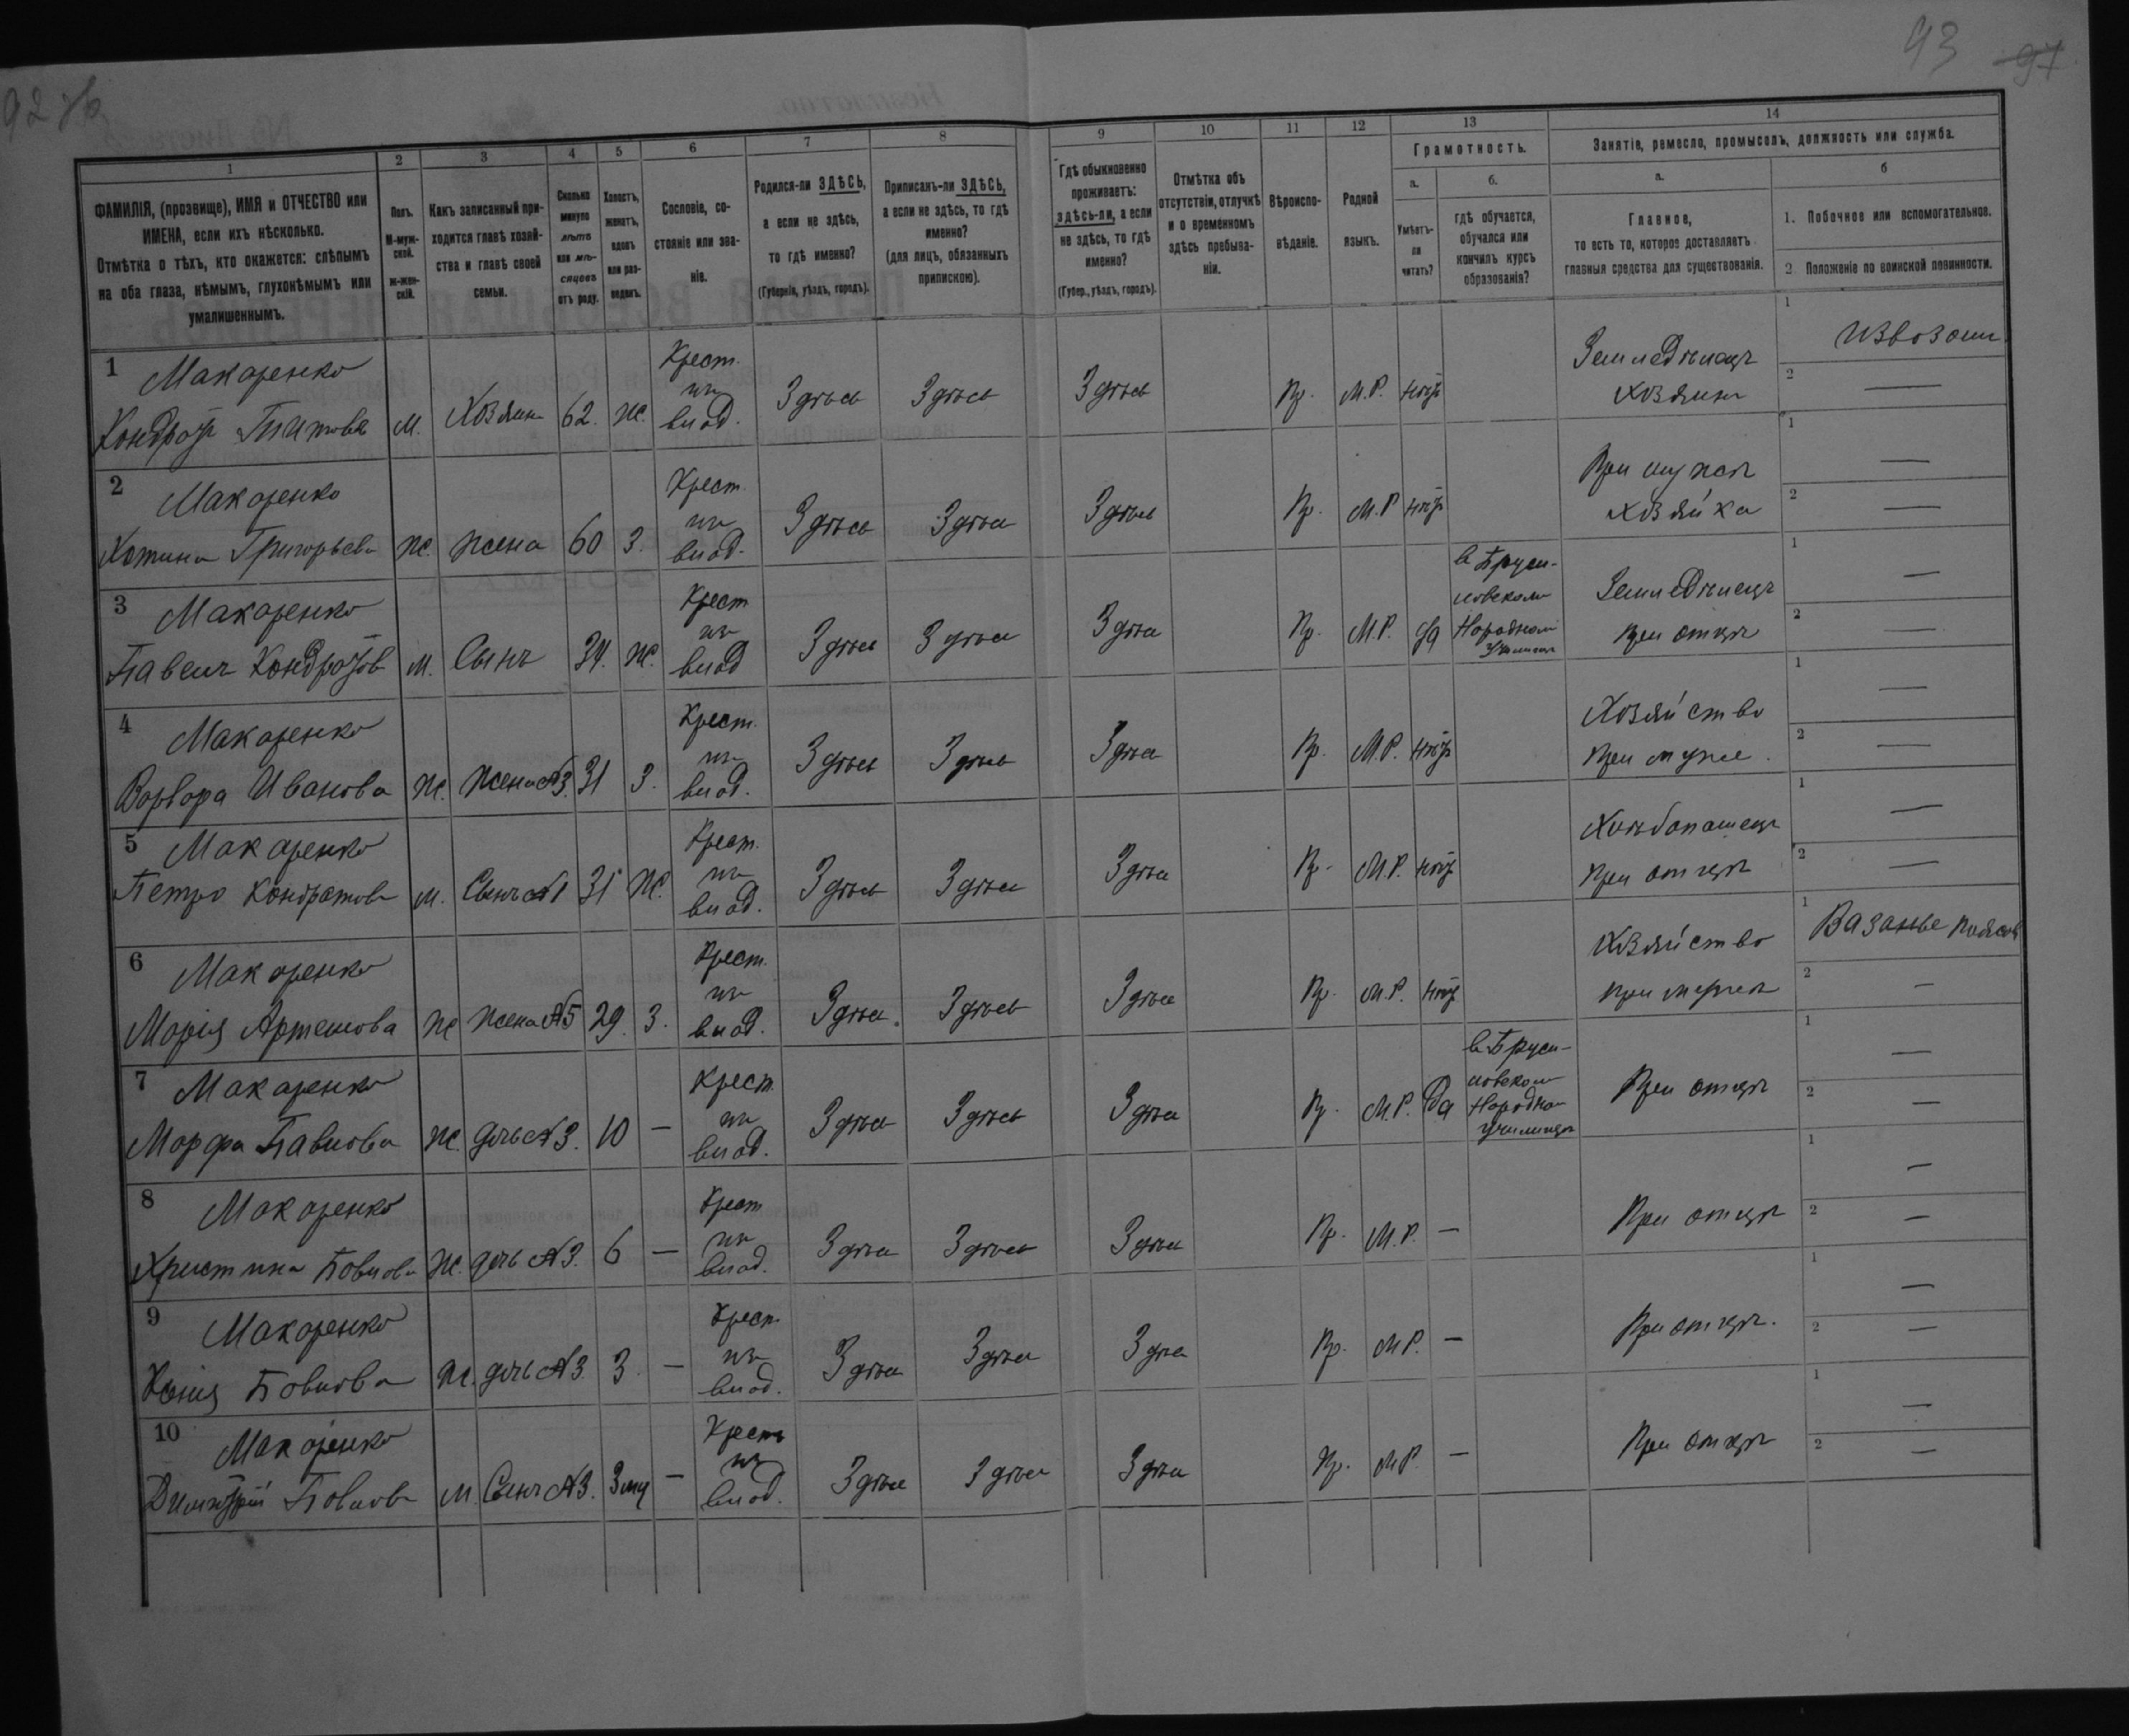 92 об
93 97
1
ФАМИЛІЯ, (прозвище), ИМЯ и ОТЧЕСТВО или
ИМЕНА, если ихъ нѣсколько.
Отмѣтка о тѣхъ, кто окажется: слѣпымъ
на оба глаза, нѣмымъ, глухонѣмымъ или
умалишеннымъ.
2
Полъ.
М-муж-
ской.
ж-жен-
скій.
3
Какъ записанный при-
ходится главѣ хозяй-
ства и главѣ своей
семьи.
4
Сколько
минуло
лѣтъ
или мѣ-
сяцевъ
отъ роду.
5
Холостъ,
женатъ,
вдовъ
или раз-
веденъ.
6
Сословіе, со-
стояніе или зва-
ніе.
7
Родился-ли ЗДѢСЬ,
а если не здѣсь,
то гдѣ именно?
(Губернія, уѣздъ, городъ).
8
Приписанъ-ли ЗДѢСЬ,
а если не здѣсь, то гдѣ
именно?
(для лицъ, обязанныхъ
припискою).
9
Гдѣ обыкновенно
проживаетъ:
здѣсь-ли, а если
не здѣсь, то гдѣ
именно?
(Губер., уѣздъ, городъ).
10
Отмѣтка объ
отсутствіи, отлучкѣ
и о временномъ
здѣсь пребыва-
ніи.
11
Вѣроиспо-
вѣданіе.
12
Родной
языкъ.
13
Грамотность.
а.
Умѣетъ-
ли
читать?
б.
гдѣ обучается,
обучался или
кончилъ курсъ
образованія?
14
Занятіе, ремесло, промыселъ, должность или служба.
а.
Главное,
то есть то, которое доставляетъ
главныя средства для существованія.
б
1. Побочное или вспомогательное.
2. Положеніе по воинской повинности.
1 Макаренко
Кондратъ Титовъ м. Хозяинъ 62. ж. Крест. изъ влад. Здѣсь Здѣсь Здѣсь Пр. М.Р. нѣтъ Земледѣлецъ хозяинъ 1 2 —
2 Макаренко
Григорьева ж. жена 60 з. Крест. изъ влад. Здѣсь Здѣсь Здѣсь Пр. М.Р. нѣтъ При мужѣ хозяйка 1 — 2 —
3 Макаренко
Павелъ Кондратовъ м. Сынъ 34. ж. Крест изъ влад Здѣсь Здѣсь Здѣсь Пр. М.Р. да Народномъ Училищѣ Земледѣлецъ при отцѣ 1 — 2 —
4 Макаренко
Варвара Иванова ж. жена №3. 31 з. Крест. изъ влад. Здѣсь Здѣсь Здѣсь Пр. М.Р. нѣтъ Хозяйство при мужѣ. 1 — 2 —
5 Макаренко
Петро Кондратовъ м. Сынъ №1 31 ж. Крест. изъ влад. Здѣсь Здѣсь Здѣсь Пр. М.Р. нѣтъ Хлѣбопашецъ при отцѣ 1 — 2 —
6 Макаренко
Марія Артемова ж жена №5 29. з. Крест. изъ влад. Здѣсь Здѣсь Здѣсь Пр. М.Р. нѣтъ Хозяйство при мужѣ 1 Вязанье поясовъ 2 —
7 Макаренко
Марфа Павлова ж. дочь №3. 10 — Крест. изъ влад. Здѣсь Здѣсь Здѣсь Пр. М.Р. да Народно училищѣ При отцѣ 1 — 2 —
8 Макаренко
Христина Павлова ж. дочь №3. 6 — Крест изъ влад. Здѣсь Здѣсь Здѣсь Пр. М.Р. — При отцѣ 1 — 2 —
9 Макаренко
Павлова ж. дочь №3 3 — Крест изъ влад. Здѣсь Здѣсь Здѣсь Пр. М.Р. — При отцѣ. 1 — 2 —
10 Макаренко
Димитрій Павловъ м. Сынъ №3. 3 мц — Крестъ изъ влад. Здѣсь Здѣсь Здѣсь Пр. М.Р. — При отцѣ 1 — 2 —